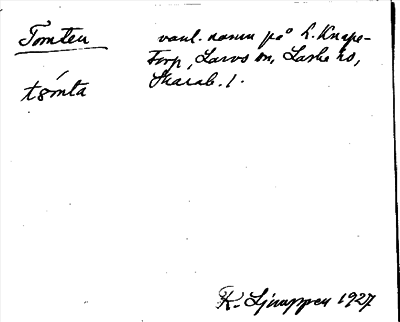 Tomten vanl. namn på L. Knape-
torp, Larvs sn, Laske hd,
tómta Skarab. l.
K. Ljunggren 1927